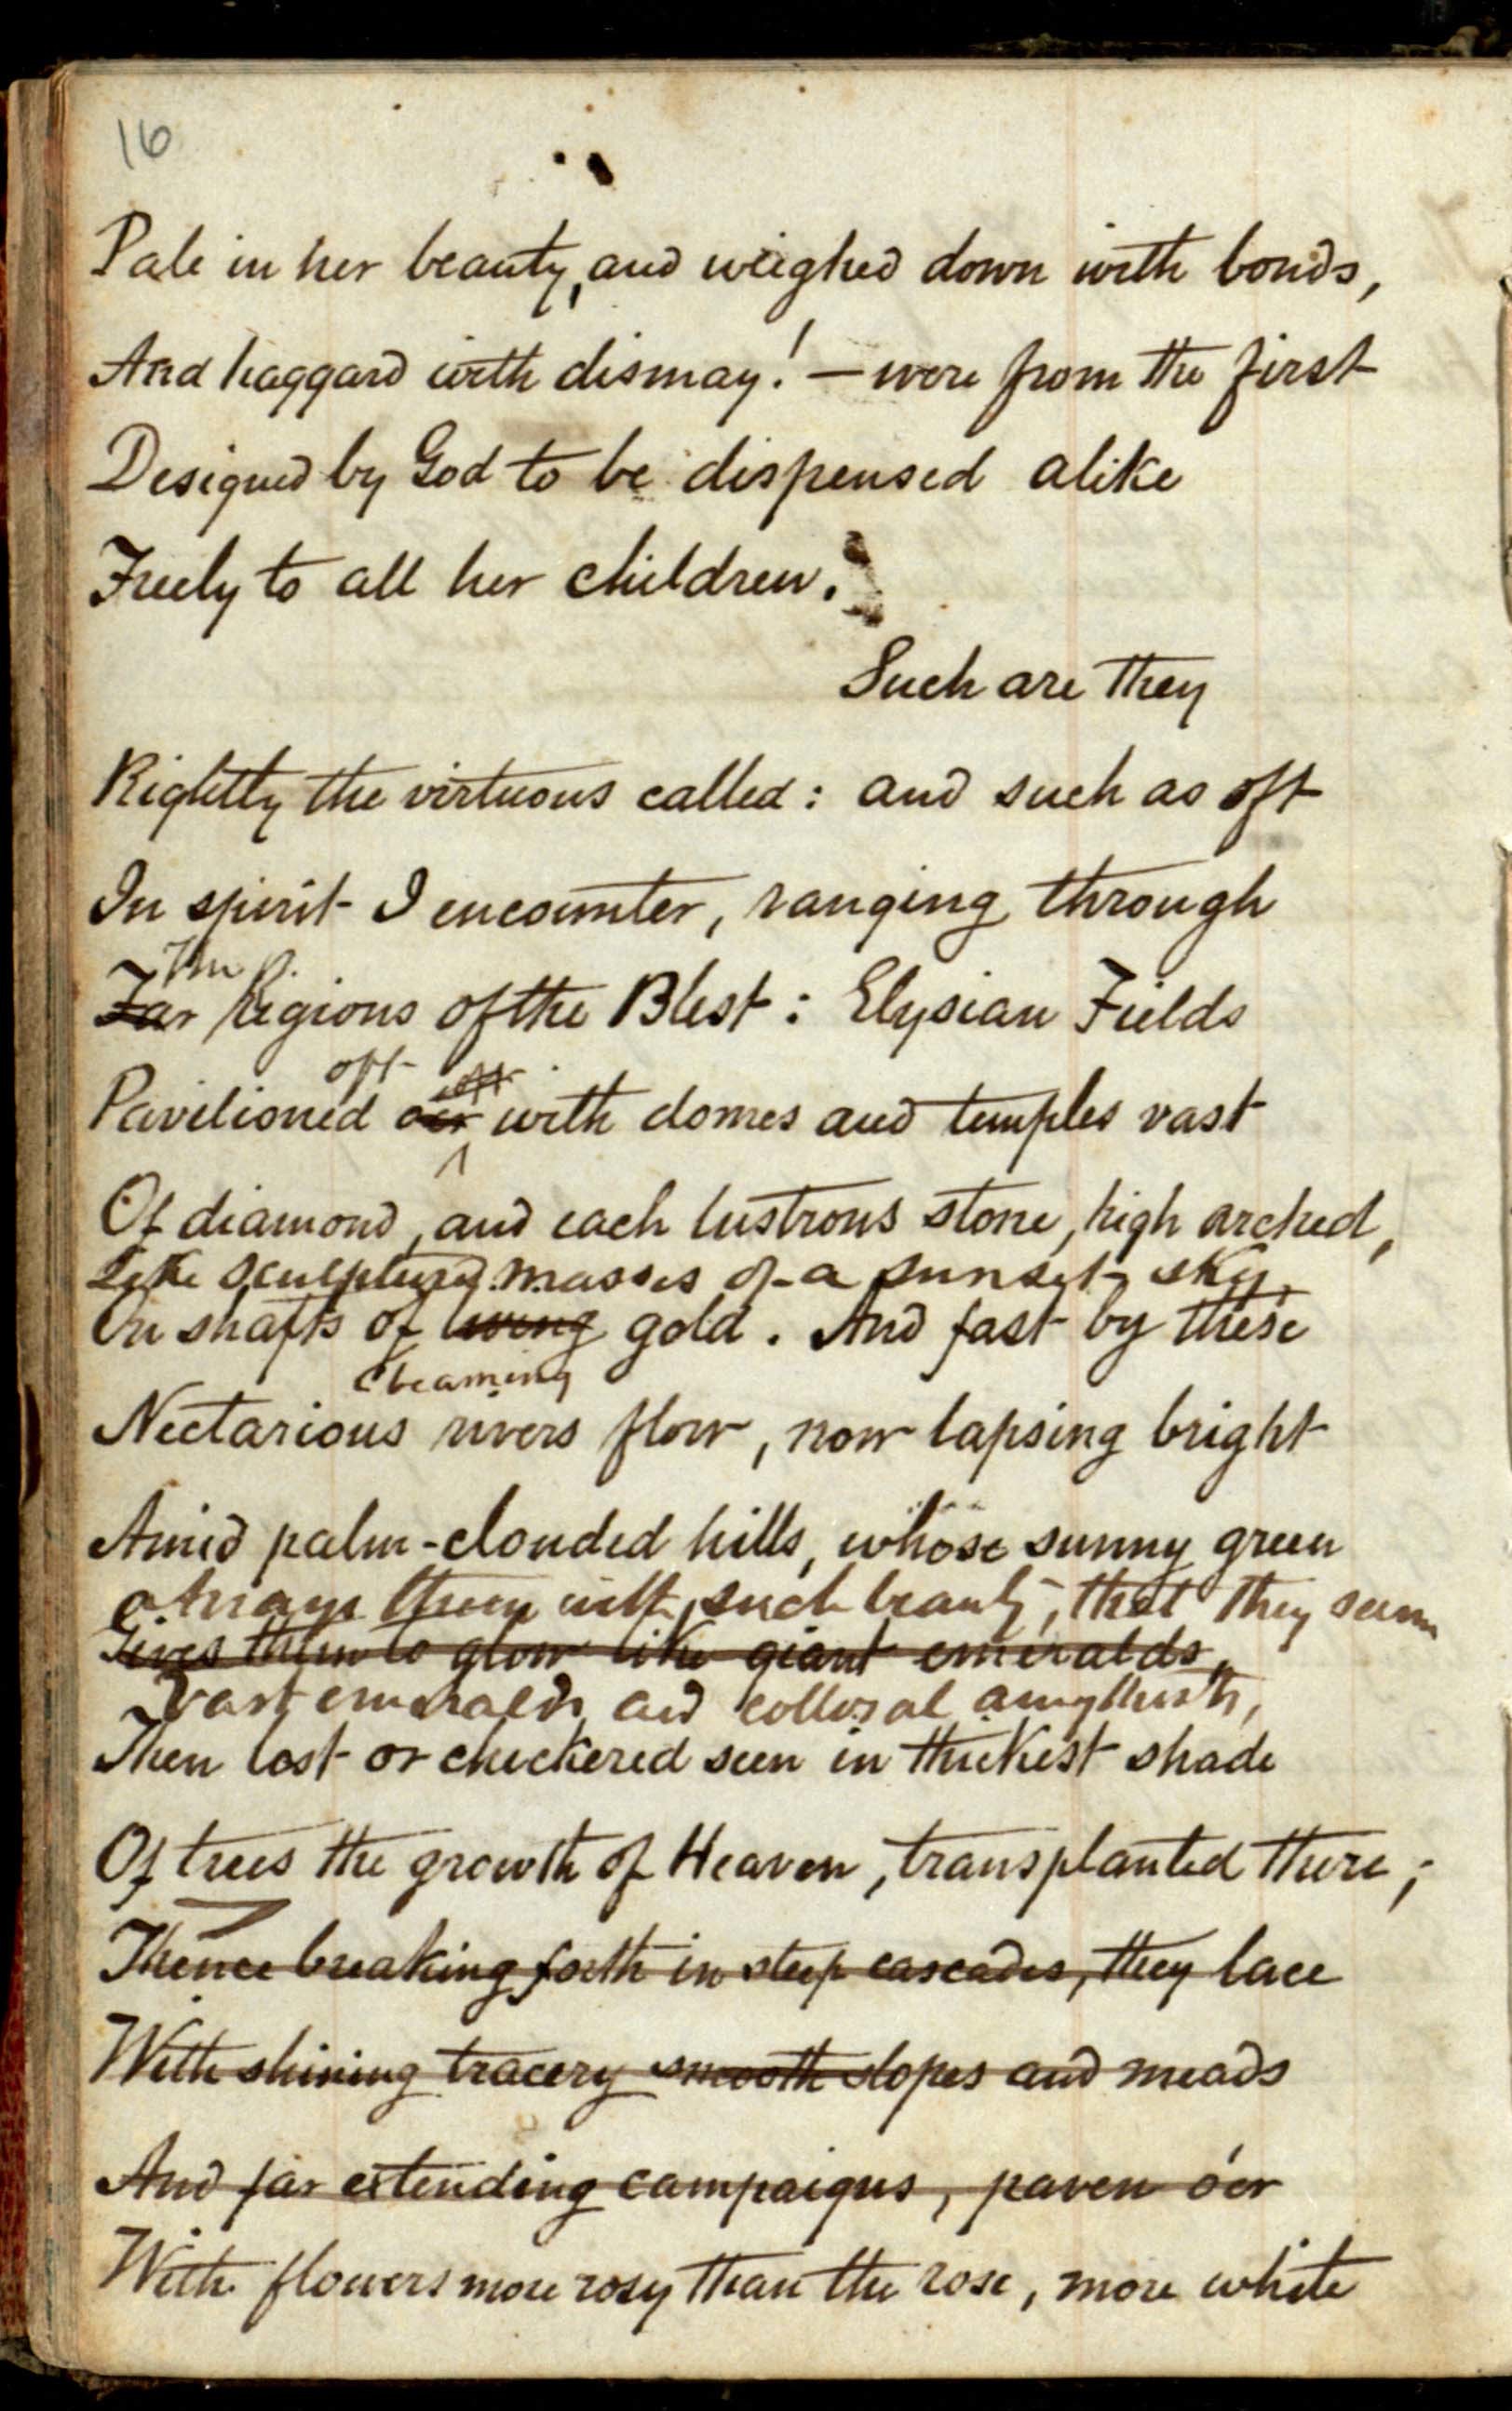 16
Pale in her beauty, and weighed down with bonds,
And haggard with dismay! — were from the first
Designed by God to be dispensed alike
Freely to all her children.
Such are they
Rightly the virtuous called: and such as oft
In spirit I encounter, ranging through
The R.
Far regions of the Blest: Elysian Fields
oft oft
Pavilioned oer with domes and temples vast
Of diamond, and each lustrous stone, high arched,
Like sculptured masses of a sunset sky,
On shafts of living gold. And fast by these
beaming
Nectarious rivers flow, now lapsing bright
Amid palm-clouded hills, whose sunny green
Arrays them with such beauty, that they seem
Gives them to glow like giant emeralds,
Vast emeralds and collosal amythists,
Then lost or checkered seen in thickest shade
Of trees the growth of Heaven, transplanted there;
Thence breaking forth in steep cascades, they lace
With shining tracery smooth slopes and meads
And far extending campaigns, paven o'er
With flowers more rosy than the rose, more white